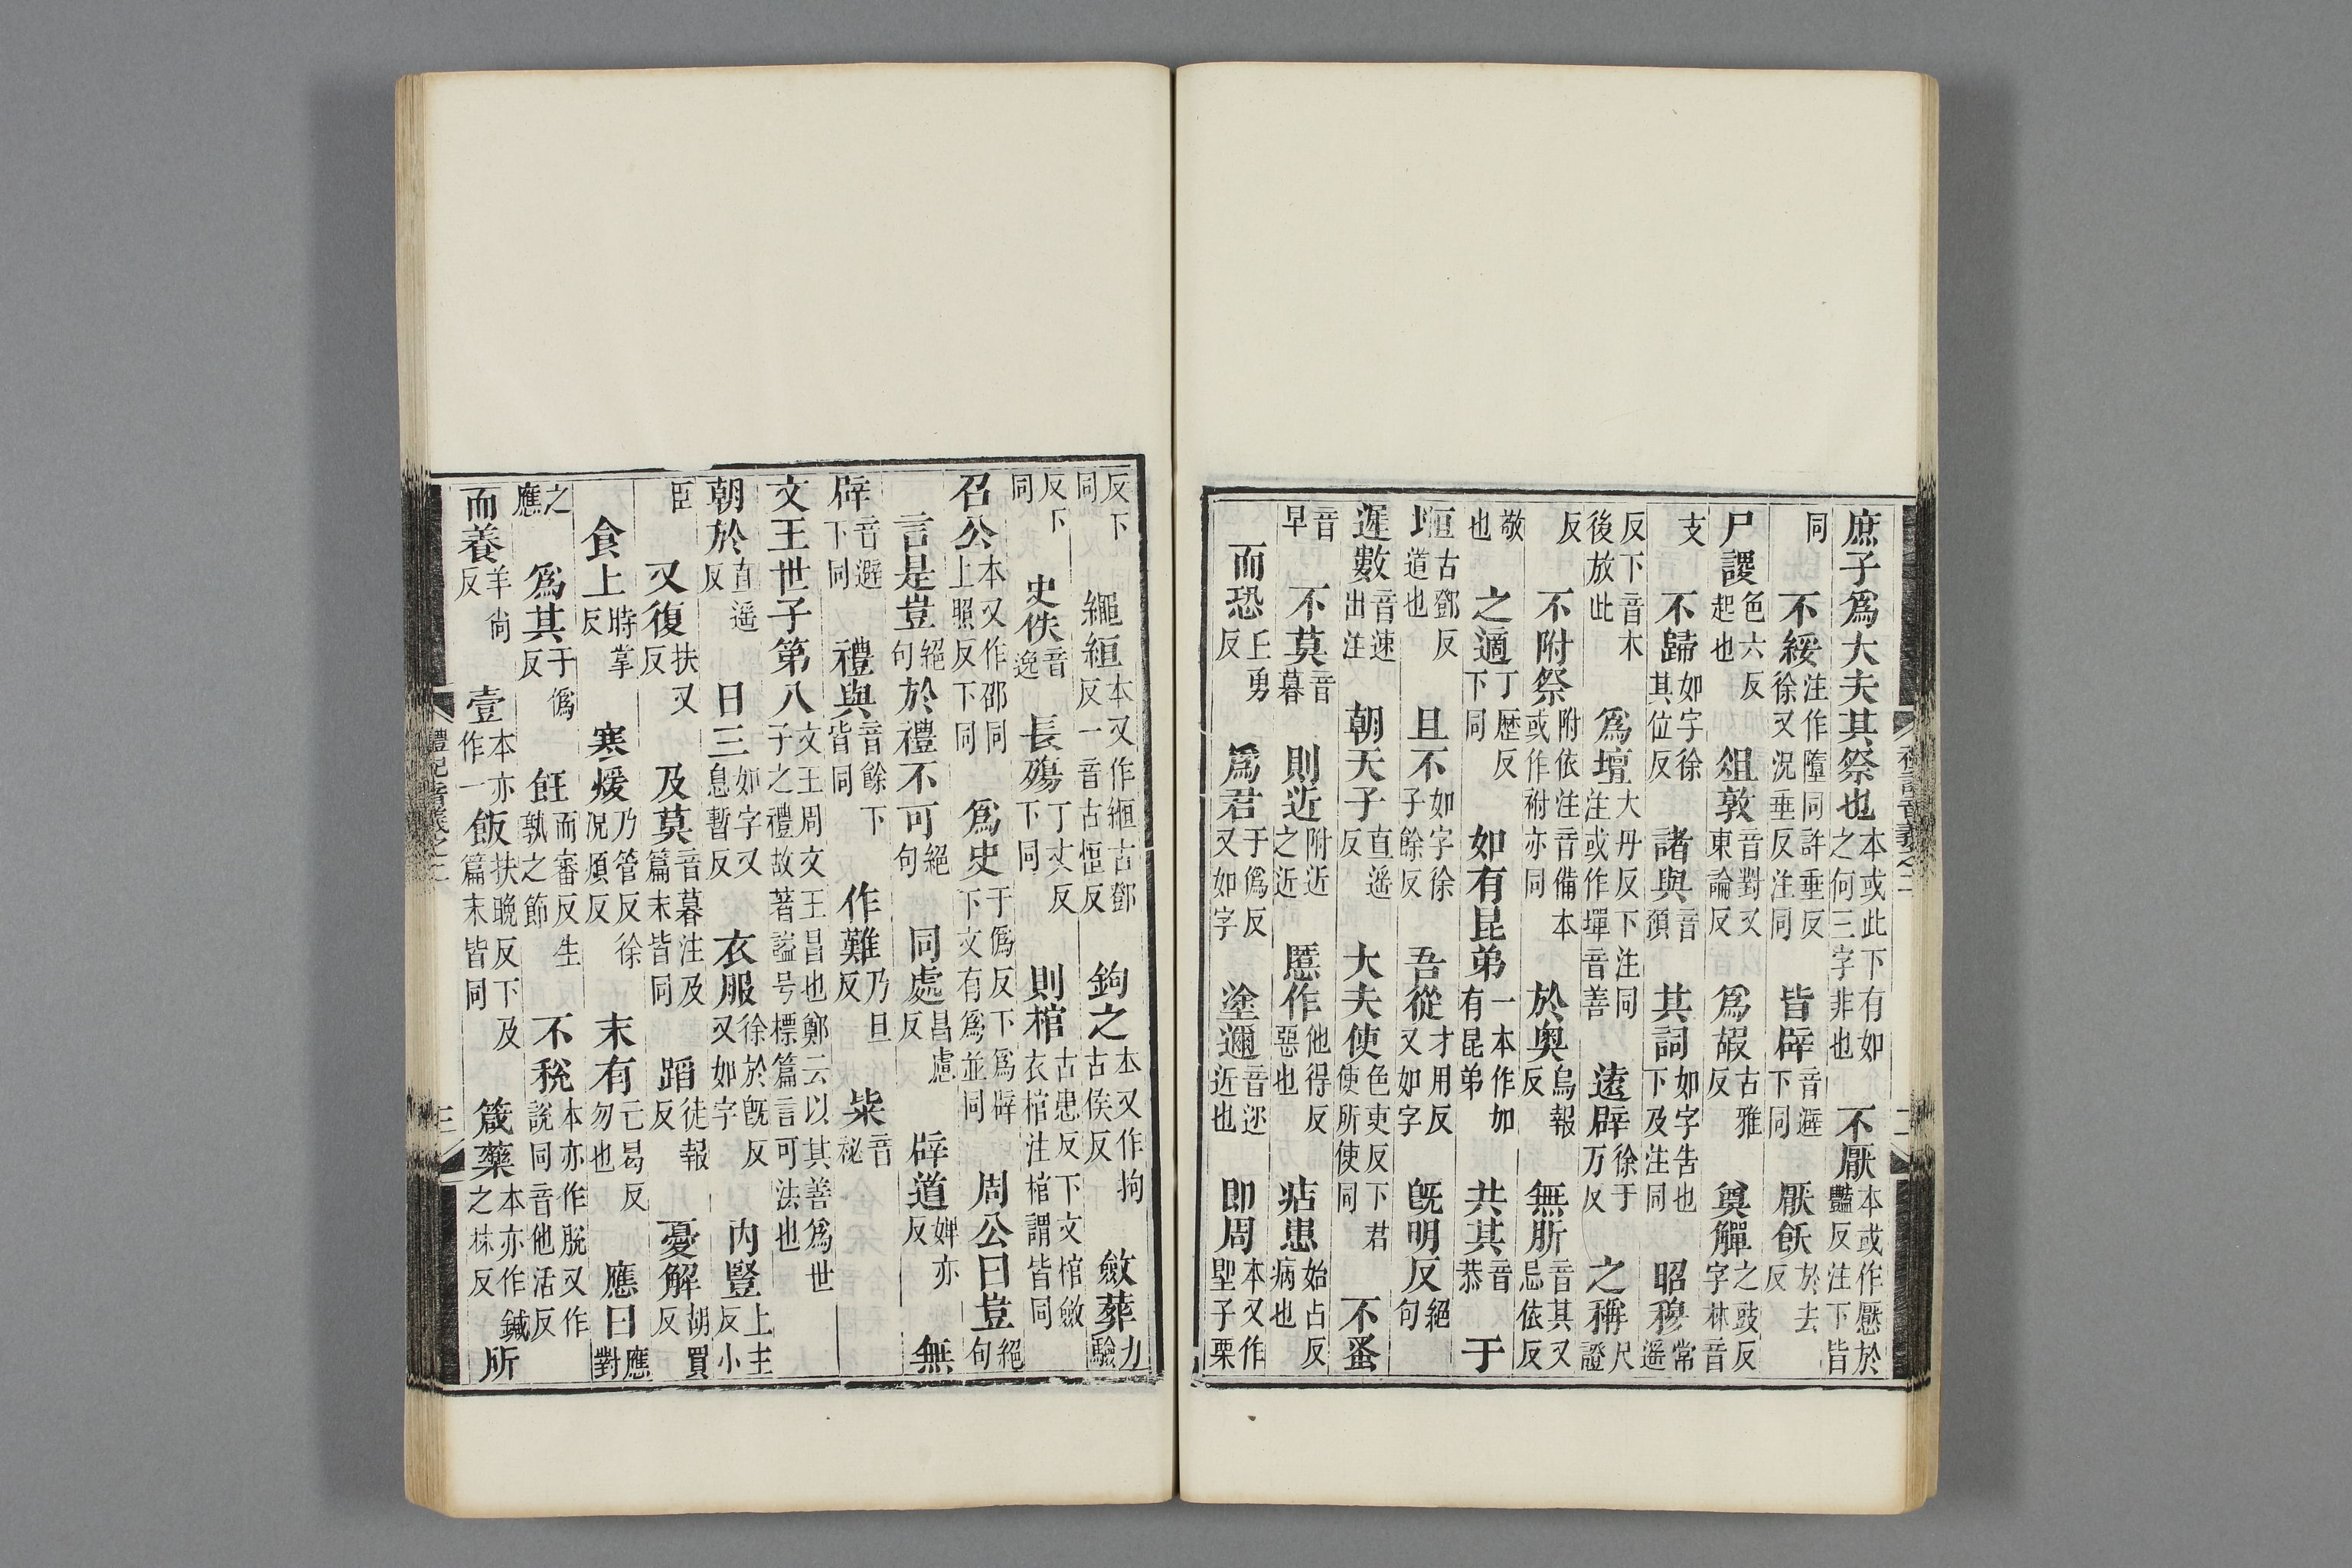 庶子爲大夫其祭也本或此下有如之何三字非也不厭本或作懕於豔反注下皆
同不綏注作墮同許垂反徐又況垂反注同皆辟音避下同厭飫於去反
尸謖色六反起也俎敦音對又東論反爲嘏古雅反奠觶之豉反字林音
支不歸如字徐其位反諸與音預其詞如字告也下及注同昭穆常遥
反下音木後放此爲壇大丹反下注同注或作墠音善遠辟徐于万反之稱尺證
反不附祭附依注音備本或作祔亦同於奥烏報反無所音其又忌依反
敬也之適丁歷反下同如有昆弟一本作如有昆弟共其音恭于
堩古鄧反道也且不如字徐子餘反吾從才用反又如字既明反絕句
遲數音速出注朝天子直遥反大夫使色吏反下君使所使同不蚤
音早不莫音暮則近附近之近慝作他得反惡也痁患始占反病也
而恐丘勇反爲君于僞反又如字塗邇音迩近也即周本又作聖子栗
禮記音義之二
二
反下同繩絙本又作縆古鄧反一音古恆反鉤之本又作拘古侯反斂葬力驗
反下同史佚音逸長殤丁丈反下同則棺古患反下文棺斂衣棺注棺謂皆同
召公本又作邵同上照反下同爲史于僞反下爲辟下文有爲並同周公曰豈絕句
言是豈絕句於禮不可絕句同處昌慮反辟道婢亦反無
辟音避下同禮與音餘下皆同作難乃旦反柴音祕
文王世子第八文王周文王昌也鄭云以其善爲世子之禮故著謚号標篇言可法也
朝於直遥反日三如字又息暫反衣服徐於既反又如字内豎上主反小
臣又復扶又反及莫音暮注及篇末皆同蹈徒報反憂解胡買反
食上時掌反寒煖乃管反徐況煩反末有亡曷反勿也應曰應對
之應爲其于僞反飪而審反生孰之節不稅本亦作脱又作說同音他活反
而養羊尚反壹本亦作一飯扶晚反下及篇末皆同箴藥本亦作鍼之林反所
禮記音義之二
三